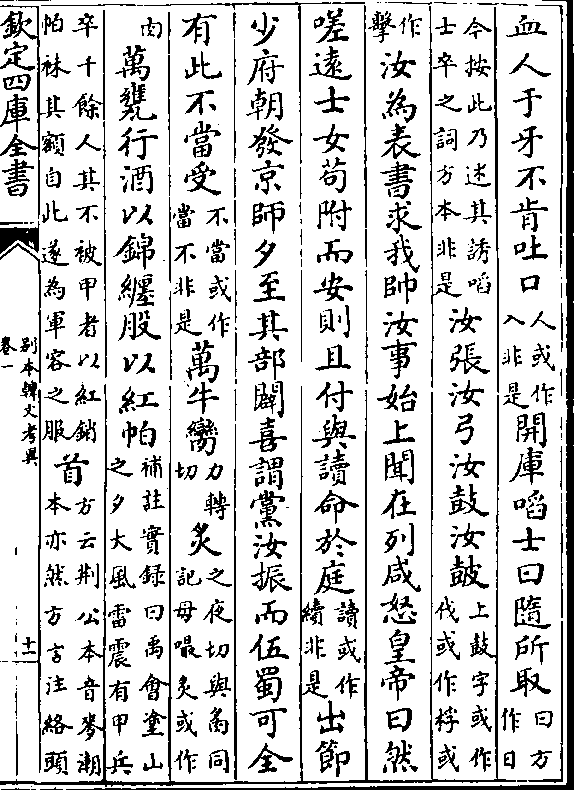 血人于牙不肯吐口人或作入非是開庫啗士曰隨所取曰方作日
今按此乃述其誘啗士卒之詞方本非是汝張汝弓汝鼓汝鼓上鼓字或作伐或作桴或
作擊汝為表書求我帥汝事始上聞在列咸怒皇帝曰然
嗟遠士女苟附而安則且付與讀命於庭讀或作續非是出節
少府朝發京師夕至其部闢喜謂黨汝振而伍蜀可全
有此不當受不當或作當不非是萬牛臠力轉切炙之夜切與禼同記毋嘬炙或作
肉萬甕行酒以錦纏股以紅帕補註實錄曰禹會塗山之夕大風雷震有甲兵
卒千餘人其不被甲者以紅綃帕袜其額自此遂為軍容之服首方云荆公本音麥潮本亦然方言注絡頭
欽定四庫全書
別本韓文考異
卷一
十一